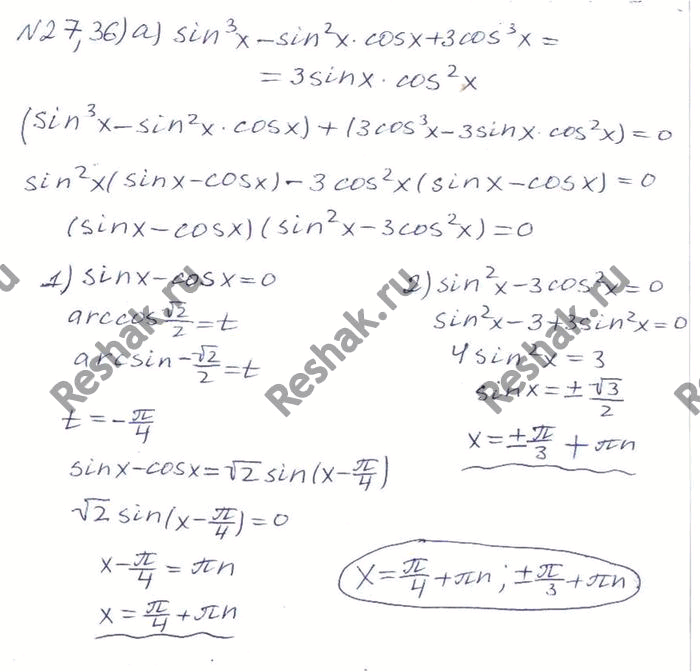 N27,36) a) sin³x – sin²x · cosx + 3cos³x =
= 3sinx · cos²x
(sin³x – sin²x · cosx) + (3cos³x – 3sinx · cos²x) = 0
sin²x (sinx – cosx) – 3cos²x (sinx – cosx) = 0
(sinx – cosx) (sin²x – 3cos²x) = 0
1) sinx – cosx = 0
arccos √2/2 = t
arcsin – √2/2 = t
t = – π/4
sinx – cosx = √2 sin(x – π/4)
√2 sin(x – π/4) = 0
x – π/4 = πn
x = π/4 + πn
2) sin²x – 3cos²x = 0
sin²x – 3 + 3sin²x = 0
4sin²x = 3
sinx = ± √3/2
x = ± π/3 + πn
x = π/4 + πn ; ± π/3 + πn
Reshak.ru
Reshak.ru
Reshak.ru